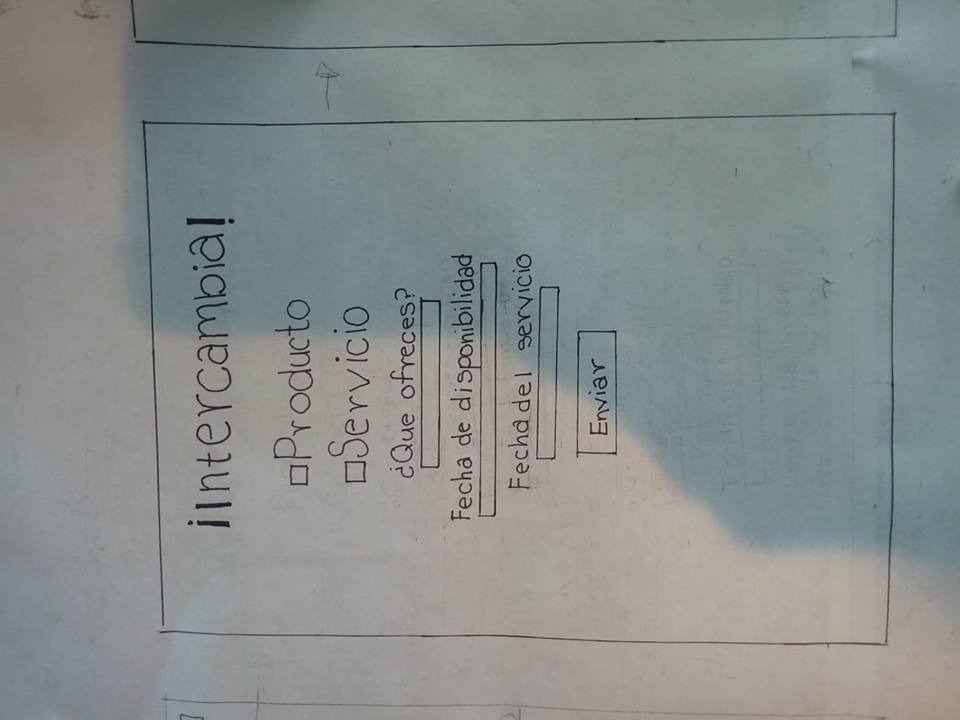 ¡Intercambia!
Producto
Servicio
¿Que ofreces?
Fecha de disponibilidad
Fecha del servicio
Enviar